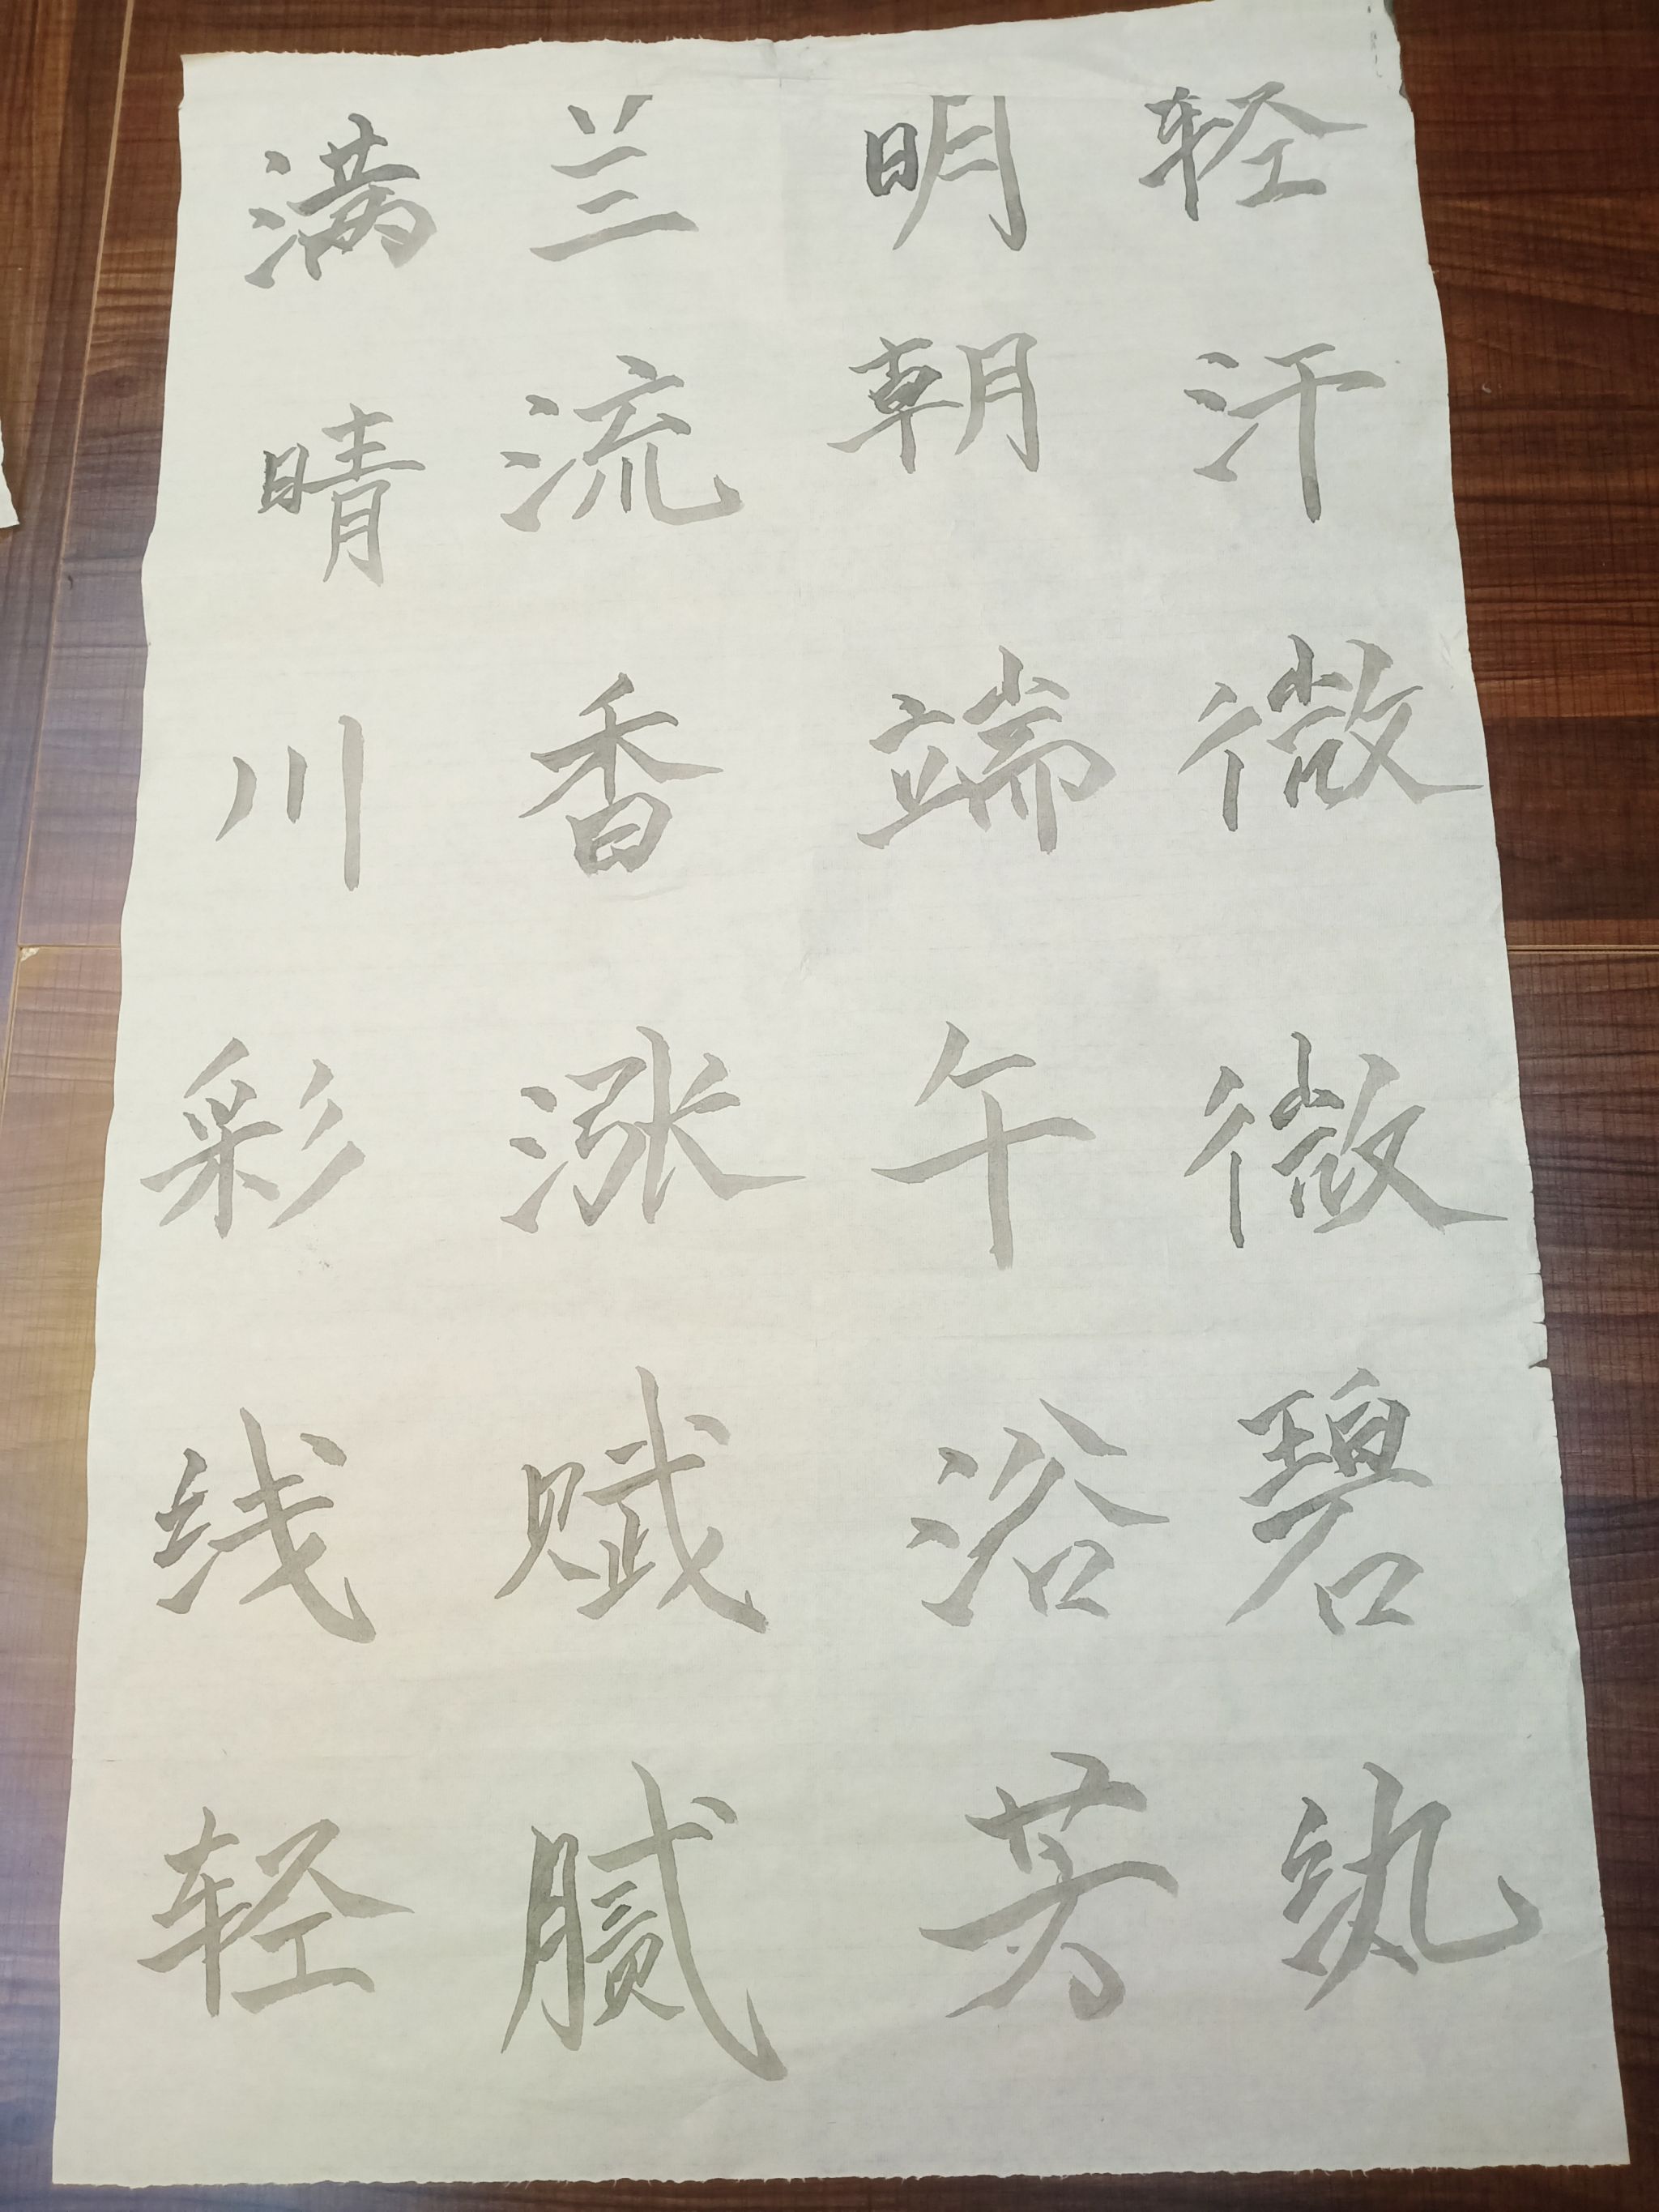 轻汗微微碧纨
明朝端午浴芳
兰流香涨赋腻
满晴川彩线轻